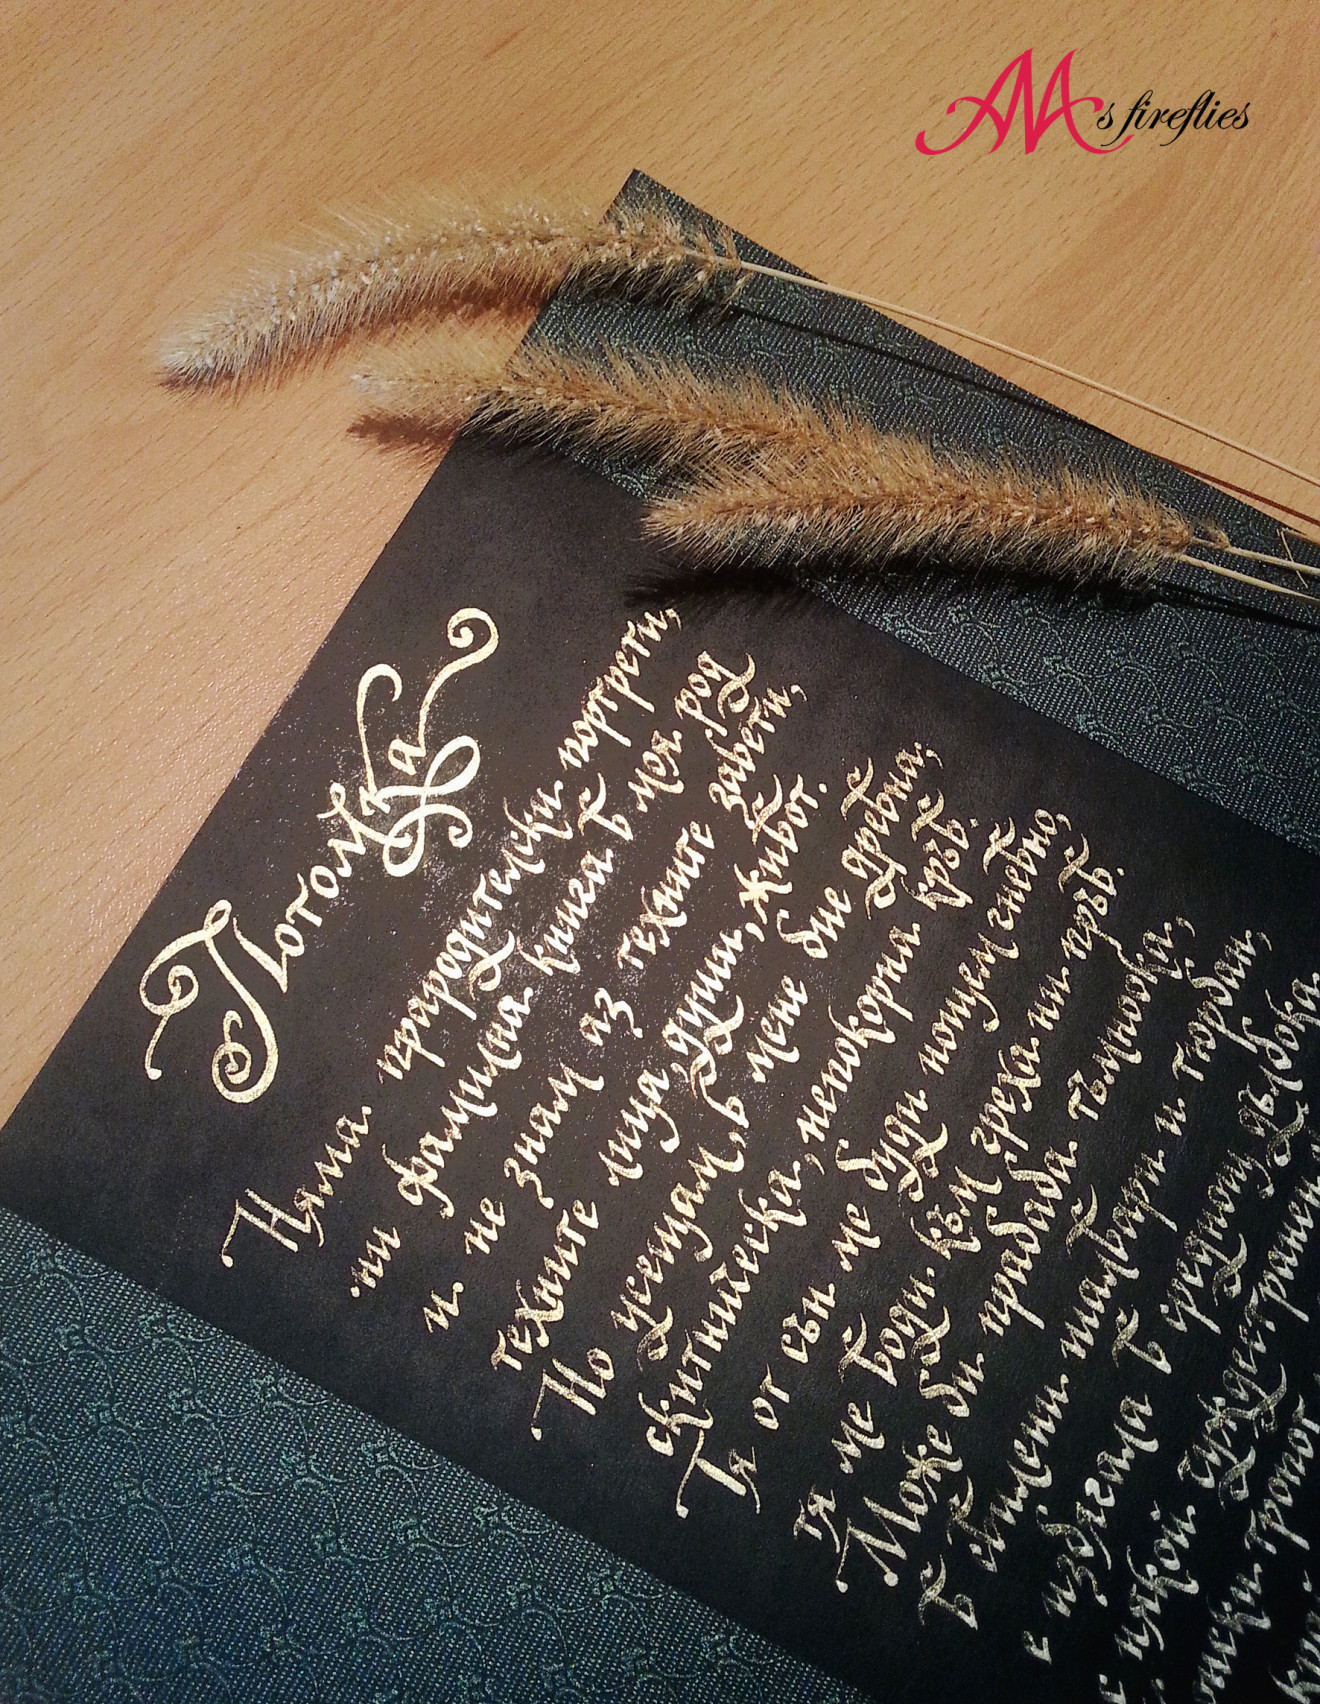 AMs fireflies
Потомка
Няма прародителски портрети,
ни фамилна книга в мея род
и не знам аз техните завети,
техните лица, души, живот.
Но усещам, в мене бие древна,
скитническа, непокорна кръв.
Тя от сън ме буди нощем гневно,
тя ме води към греха ни пръв.
Може би прабаба тъмноока,
в свилени шалвари и тюрбан,
е избягала в среднощ дълбока
с някой